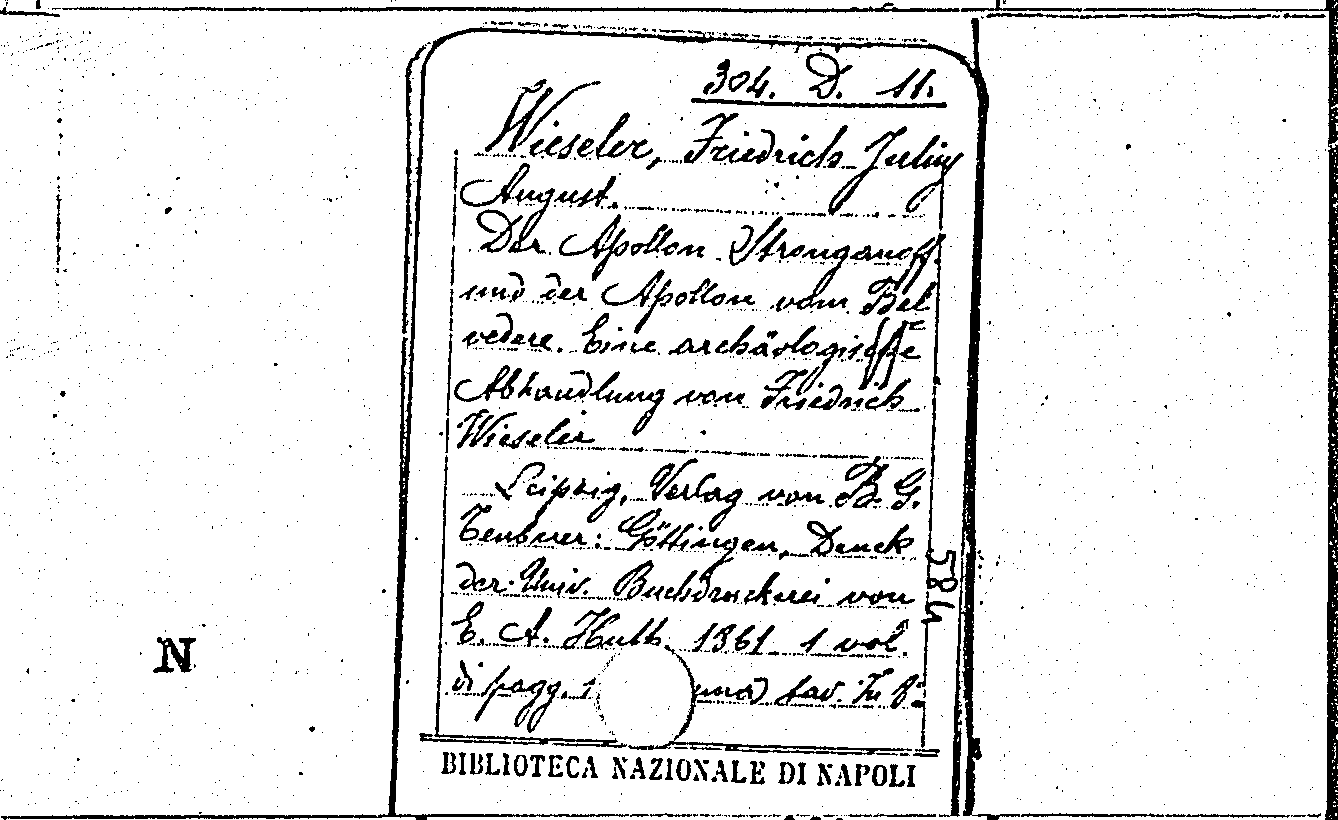 304. D. 11.
Wieseler, Friedrich Julius
August.
Der Apollon Stronganoff
und der Apollon vom Bel
vedere. Eine archäologische
Abhandlung von Friedrich
Wieseler
Leipzig, Verlag von B. G.
Teubner: Göttingen, Druck
der Univ. Buchdruckerei von
E. A. Huth. 1861. 1 vol.
di pagg. 1 una) tav. In 8°
584
N
BIBLIOTECA NAZIONALE DI NAPOLI